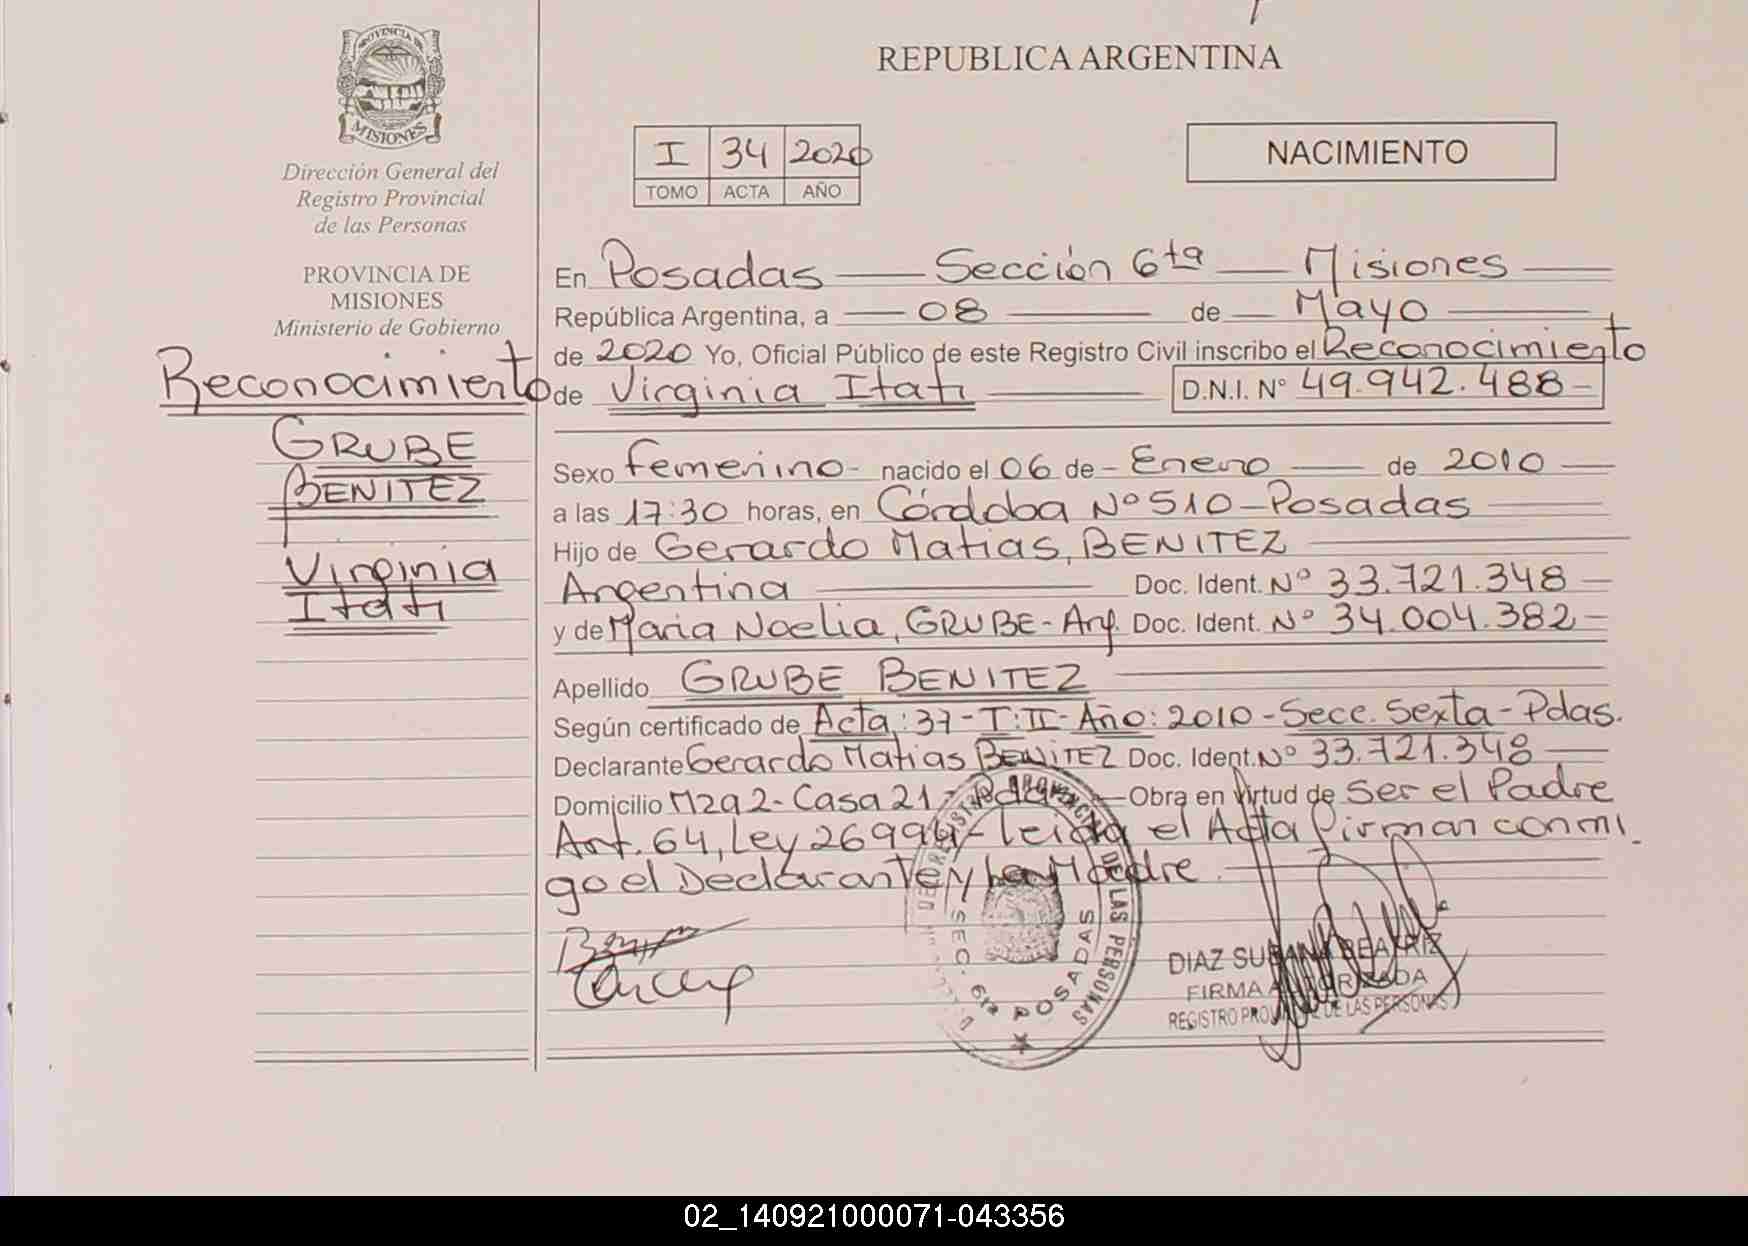 PROVINCIA DE
MISIONES
Dirección General del
Registro Provincial
de las Personas
PROVINCIA DE
MISIONES
Ministerio de Gobierno
Reconocimiento
GRUBE
BENITEZ
Virginia
Itatí
REPUBLICA ARGENTINA
I 34 2020
TOMO ACTA AÑO
NACIMIENTO
En Posadas — Sección 6ta — Misiones —
República Argentina, a — 08 — de — Mayo —
de 2020 Yo, Oficial Público de este Registro Civil inscribo el Reconocimiento
de Virginia Itatí — D.N.I. N° 49.942.488 –
Sexo Femenino - nacido el 06 de – Enero — de 2010 —
a las 17:30 horas, en Córdoba Nº 510 – Posadas —
Hijo de Gerardo Matias, BENITEZ —
Argentina — Doc. Ident. Nº 33.721.348 —
y de Maria Noelia, GRUBE - Arg. Doc. Ident. Nº 34.004.382 –
Apellido GRUBE BENITEZ —
Según certificado de Acta: 37 - T: II - Año: 2010 - Secc. Sexta - Pdas.
Declarante Gerardo Matias BENITEZ Doc. Ident. Nº 33.721.348 —
Domicilio Mza 2 - Casa 21 - Pdas — Obra en virtud de Ser el Padre
Art. 64, Ley 26994 - Leida el Acta firman conmi
go el Declarante y La Madre. —
SEC. 6ta POSADAS
DIAZ SUSANA BEATRIZ
FIRMA AUTORIZADA
REGISTRO PROVINCIAL DE LAS PERSONAS
02_140921000071-043356